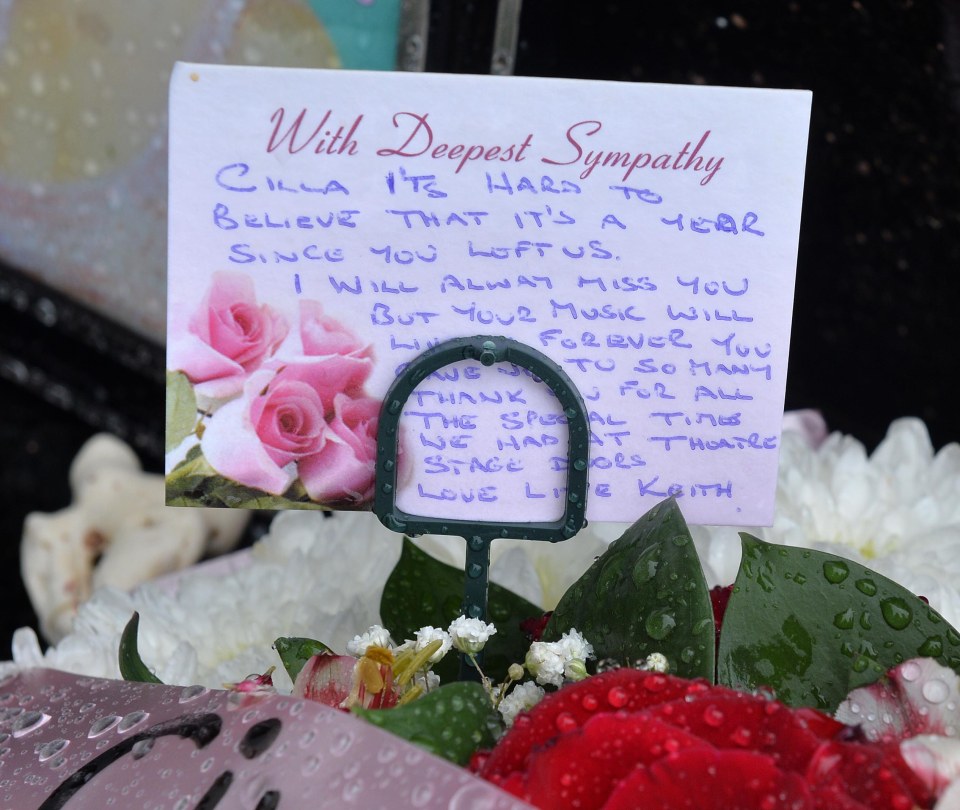 With Deepest Sympathy
CILLA IT'S HARD TO
BELIEVE THAT IT'S A YEAR
SINCE YOU LEFT US.
I WILL ALWAY MISS YOU
BUT YOUR MUSIC WILL
FOREVER YOU
TO SO MANY
THANK FOR ALL
THE SPECIAL TIMES
WE HAD AT THEATRE
STAGE DOORS
LOVE KEITH